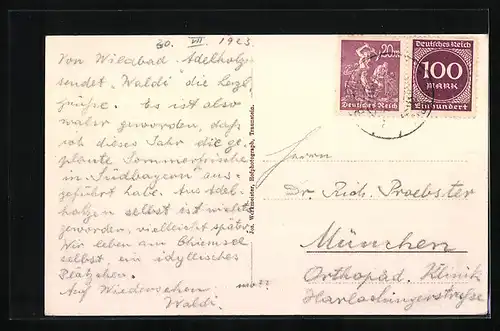 30. VII. 1923
Von Wildbad Adelholz
sendet "Waldi" die herzl
Grüße. Es ist also
wahr geworden, daß
ich dieses Jahr die ge-
plante Sommerfrische
in Südbayern aus-
geführt habe. Aus Adel-
holzen selbst ist nichts
geworden, vielleicht später
Wir leben am Chiemsee
selbst, ein idyllisches
Plätzchen.
Auf Wiedersehen
Waldi.
Jos. Werkmeister, Hofphotograph, Traunstein.
20M
Deutsches Reich
Deutsches Reich
100
MARK
Einhundert
Herrn
Dr. Rich. Proebster
München
Orthopäd. Klinik
Harlachingerstraße